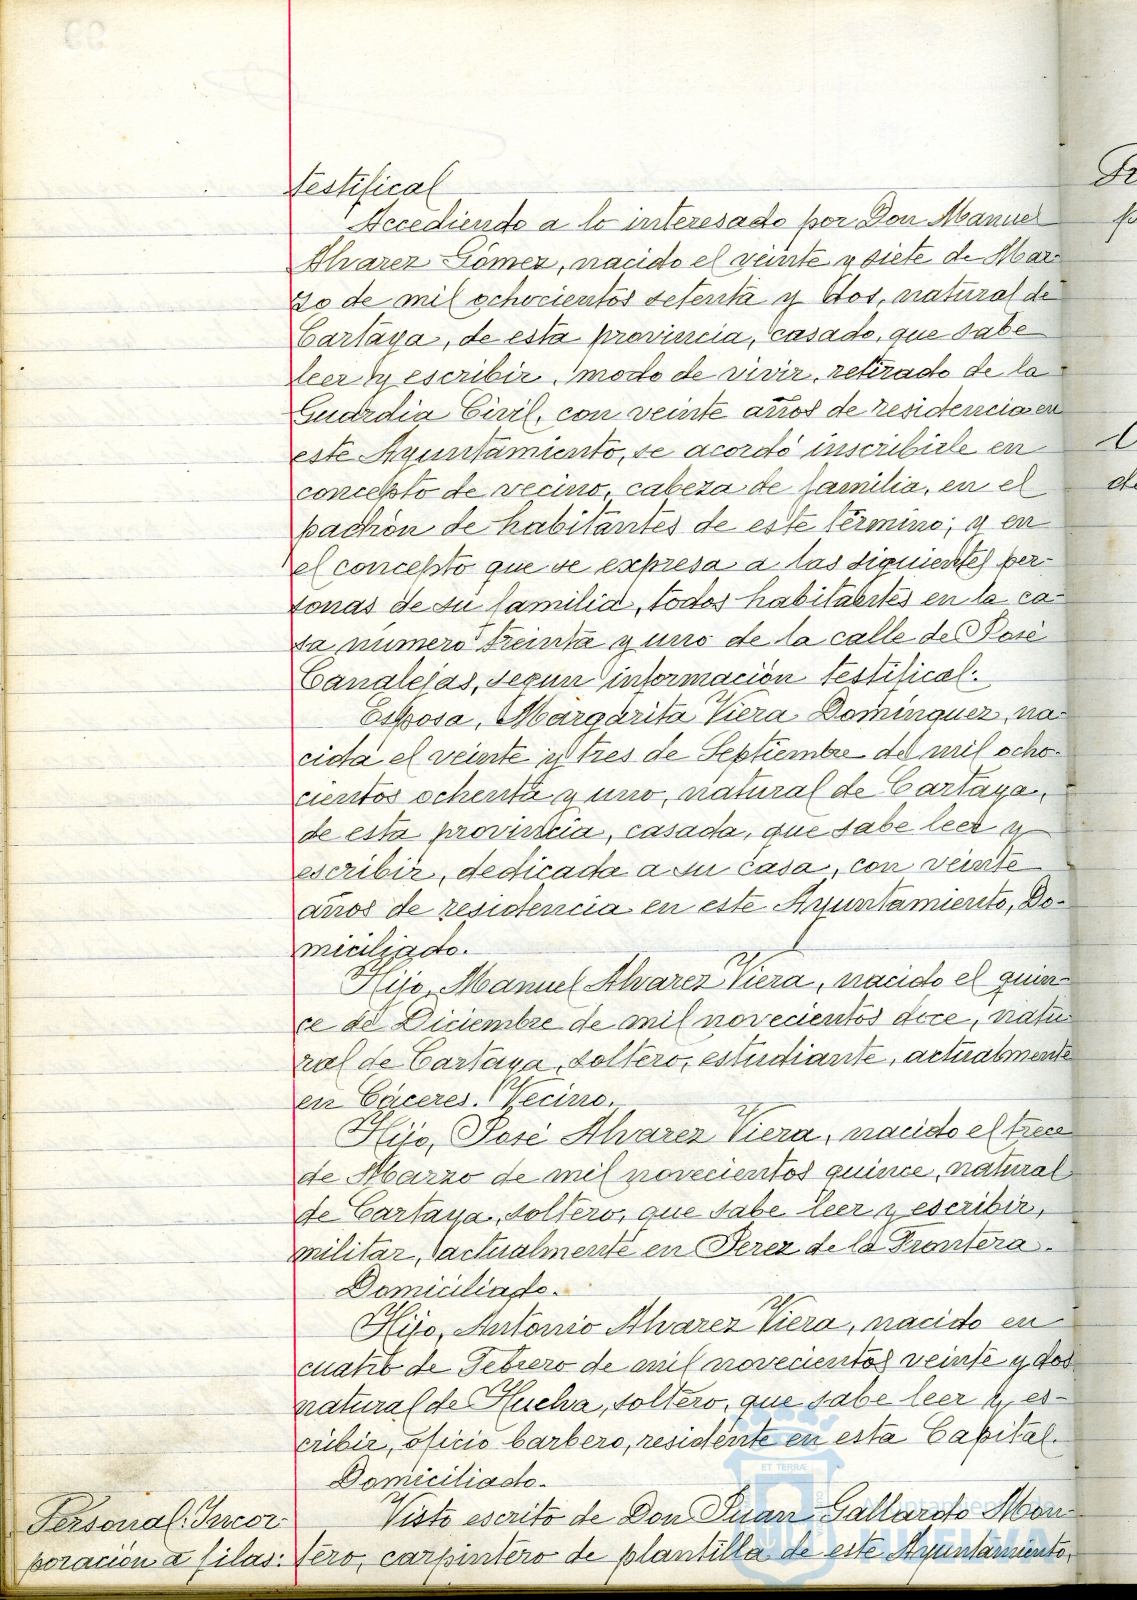 testifical
Accediendo a lo interesado por Don Manuel
Alvarez Gómez, nacido el veinte y siete de Mar-
zo de mil ochocientos setenta y dos, natural de
Cartaya, de esta provincia, casado, que sabe
leer y escribir, modo de vivir, retirado de la
Guardia Civil, con veinte años de residencia en
este Ayuntamiento, se acordó inscribirle en
concepto de vecino, cabeza de familia, en el
padrón de habitantes de este término; y en
el concepto que se expresa a las siguientes per-
sonas de su familia, todos habitantes en la ca-
sa número treinta y uno de la calle de José
Canalejas, segun información testifical.
Esposa, Margarita Viera Domínguez, na-
cida el veinte y tres de Septiembre de mil ocho-
cientos ochenta y uno, natural de Cartaya,
de esta provincia, casada, que sabe leer y
escribir, dedicada a su casa, con veinte
años de residencia en este Ayuntamiento, Do-
miciliado.
Hijo, Manuel Alvarez Viera, nacido el quin-
ce de Diciembre de mil novecientos doce, natu-
ral de Cartaya, soltero, estudiante, actualmente
en Cáceres. Vecino.
Hijo, José Alvarez Viera, nacido el trece
de Marzo de mil novecientos quince, natural
de Cartaya, soltero, que sabe leer y escribir,
militar, actualmente en Jerez de la Frontera.
Domiciliado.
Hijo, Antonio Alvarez Viera, nacido en
cuatro de Febrero de mil novecientos veinte y dos
natural de Huelva, soltero, que sabe leer y es-
cribir, oficio barbero, residente en esta Capital.
Domiciliado.
Personal: Incor-
poración a filas:
Visto escrito de Don Juan Gallardo Mon-
tero, carpintero de plantilla de este Ayuntamiento,
ET TERRÆ
Ayuntamiento de
HUELVA